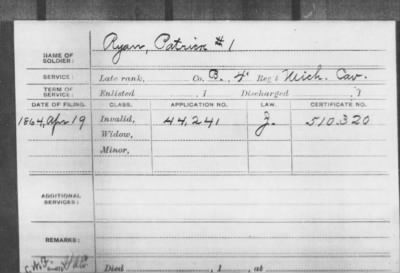 NAME OF SOLDIER: Ryan, Patrick #1
SERVICE: Late rank, Co. B, 4" Reg't Mich. Cav.
TERM OF SERVICE: Enlisted , 1 Discharged , 1
DATE OF FILING. CLASS. APPLICATION NO. LAW. CERTIFICATE NO.
1864, Apr 19 Invalid, 44,241 Z. 510.320
Widow,
Minor,
ADDITIONAL SERVICES:
REMARKS:
Died , 1 , at